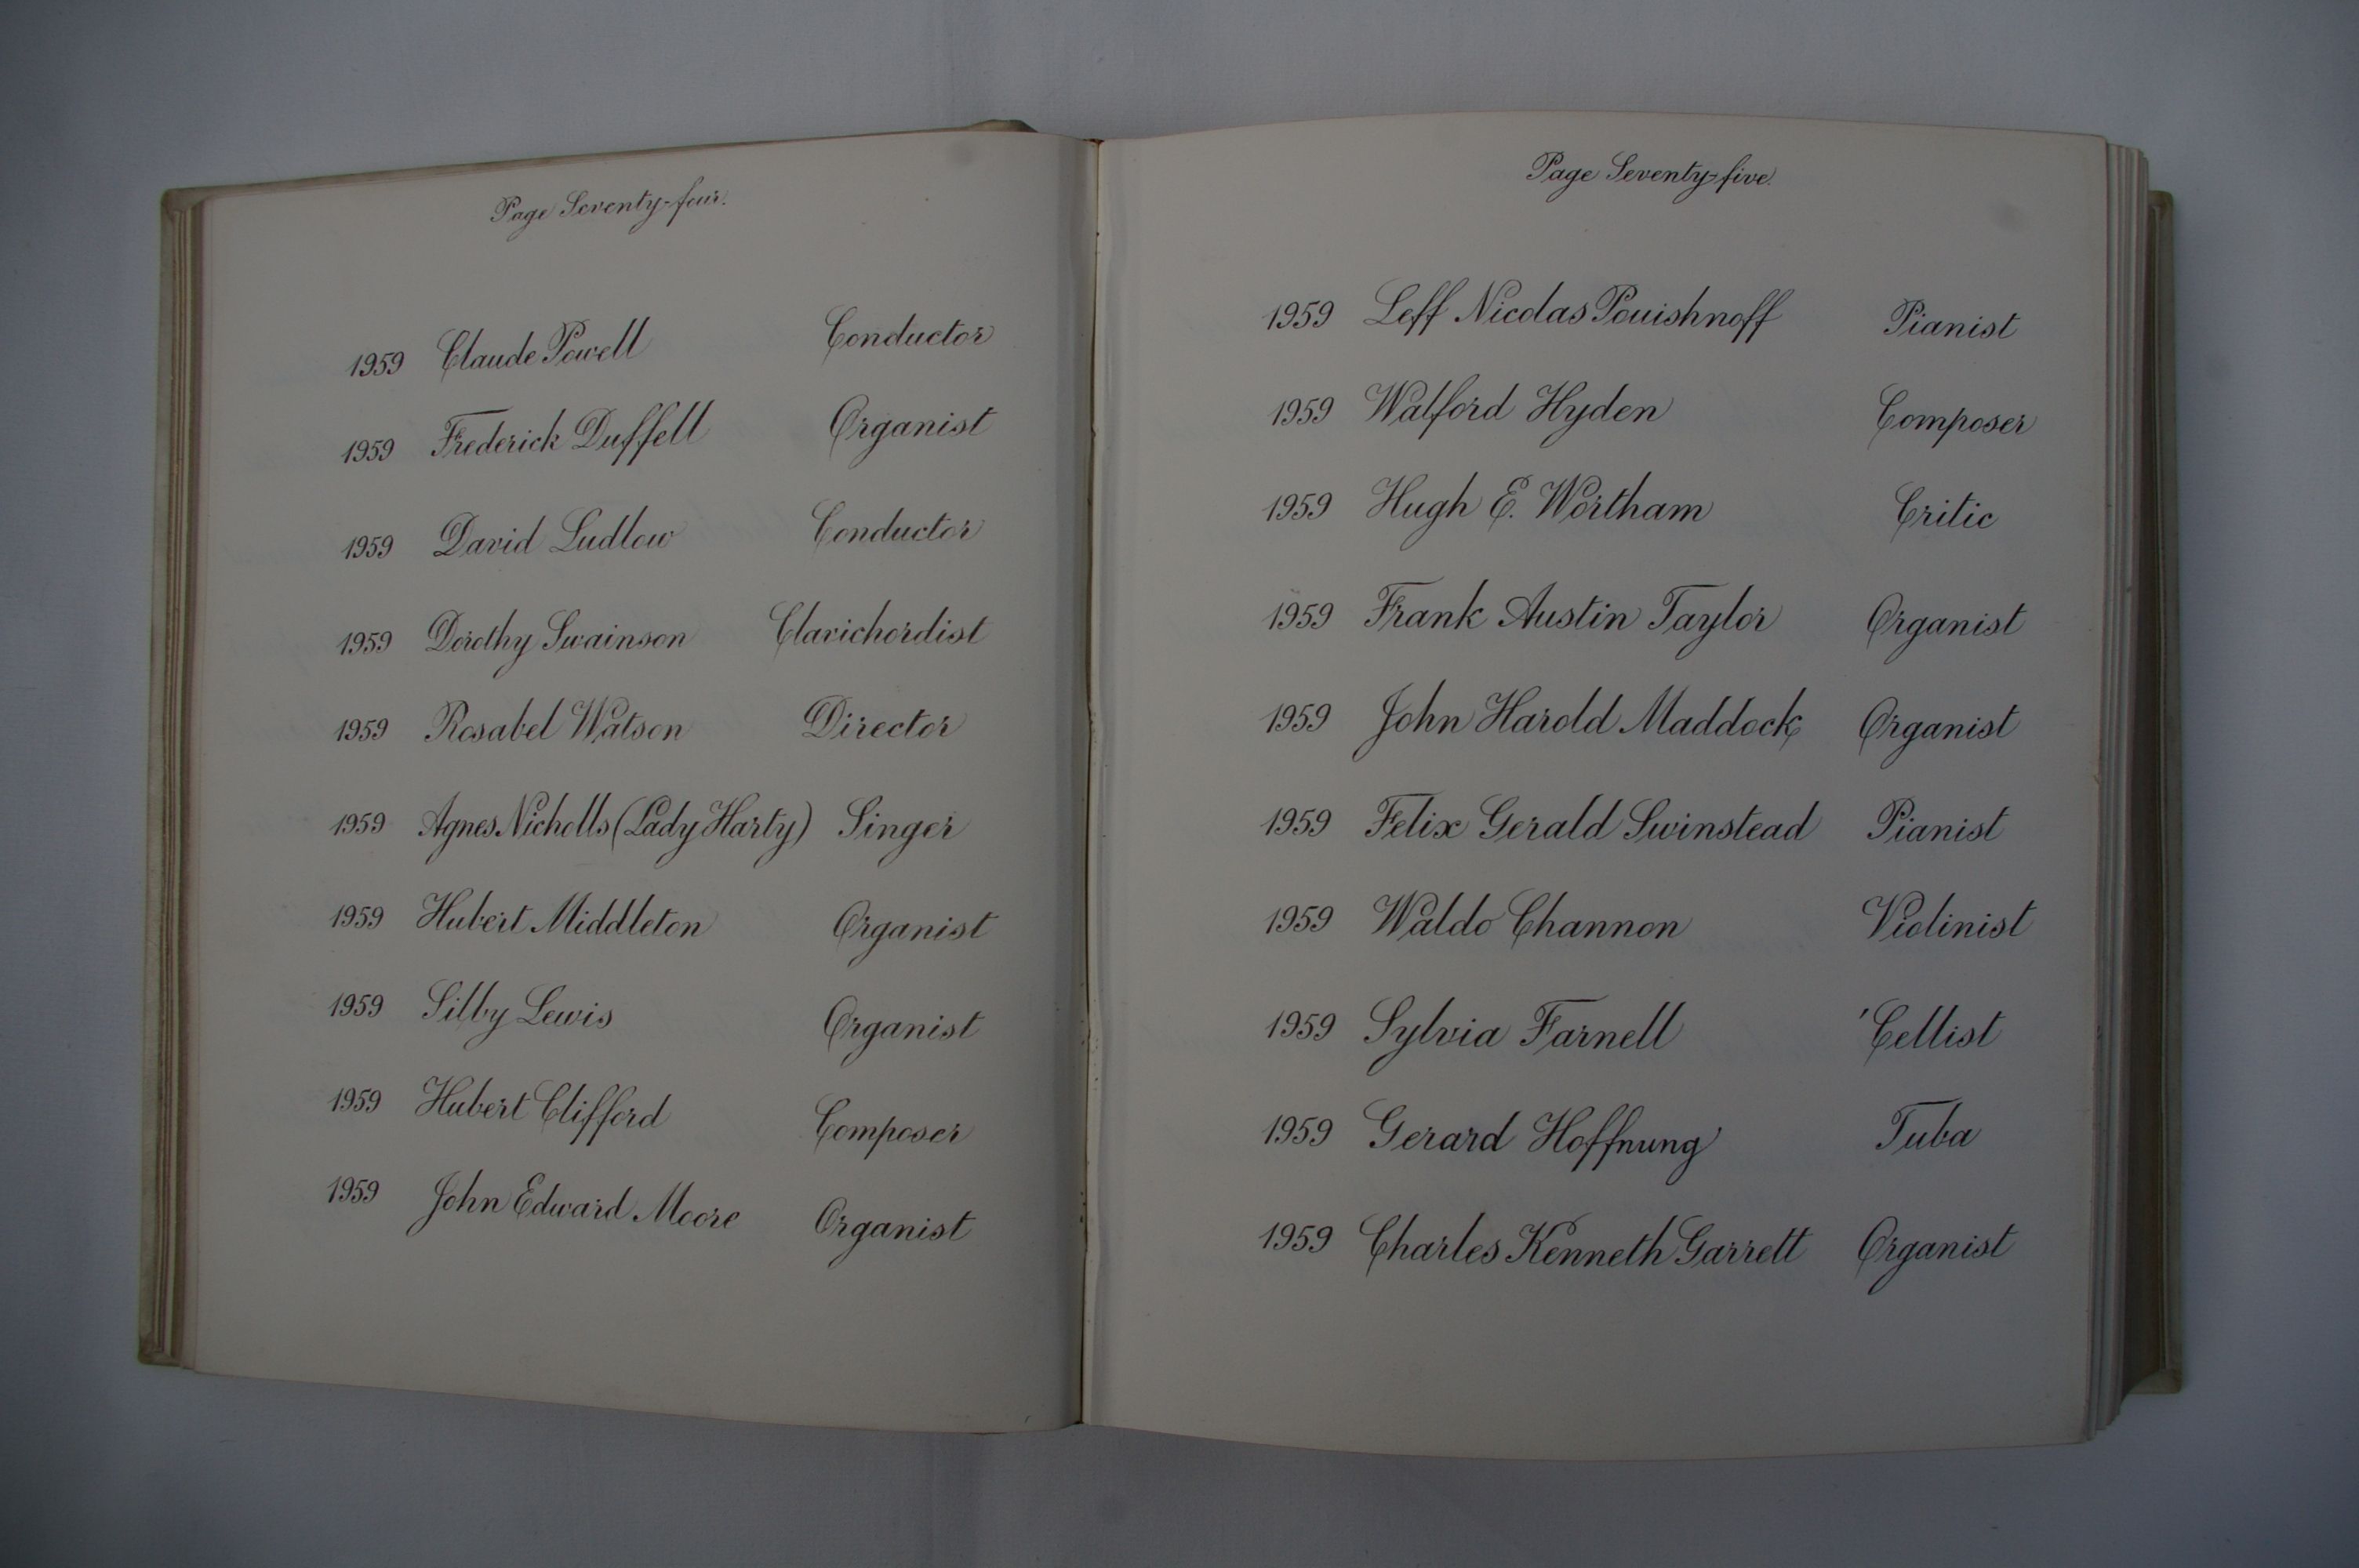 Page Seventy-four.
1959 Claude Powell Conductor
1959 Frederick Duffell Organist
1959 David Ludlow Conductor
1959 Dorothy Swainson Clavichordist
1959 Rosabel Watson Director
1959 Agnes Nicholls (Lady Harty) Singer
1959 Hubert Middleton Organist
1959 Silby Lewis Organist
1959 Hubert Clifford Composer
1959 John Edward Moore Organist
Page Seventy-five.
1959 Leff Nicolas Pouishnoff Pianist
1959 Walford Hyden Composer
1959 Hugh E. Wortham Critic
1959 Frank Austin Taylor Organist
1959 John Harold Maddock Organist
1959 Felix Gerald Swinstead Pianist
1959 Waldo Channon Violinist
1959 Sylvia Farnell 'Cellist
1959 Gerard Hoffnung Tuba
1959 Charles Kenneth Garrett Organist